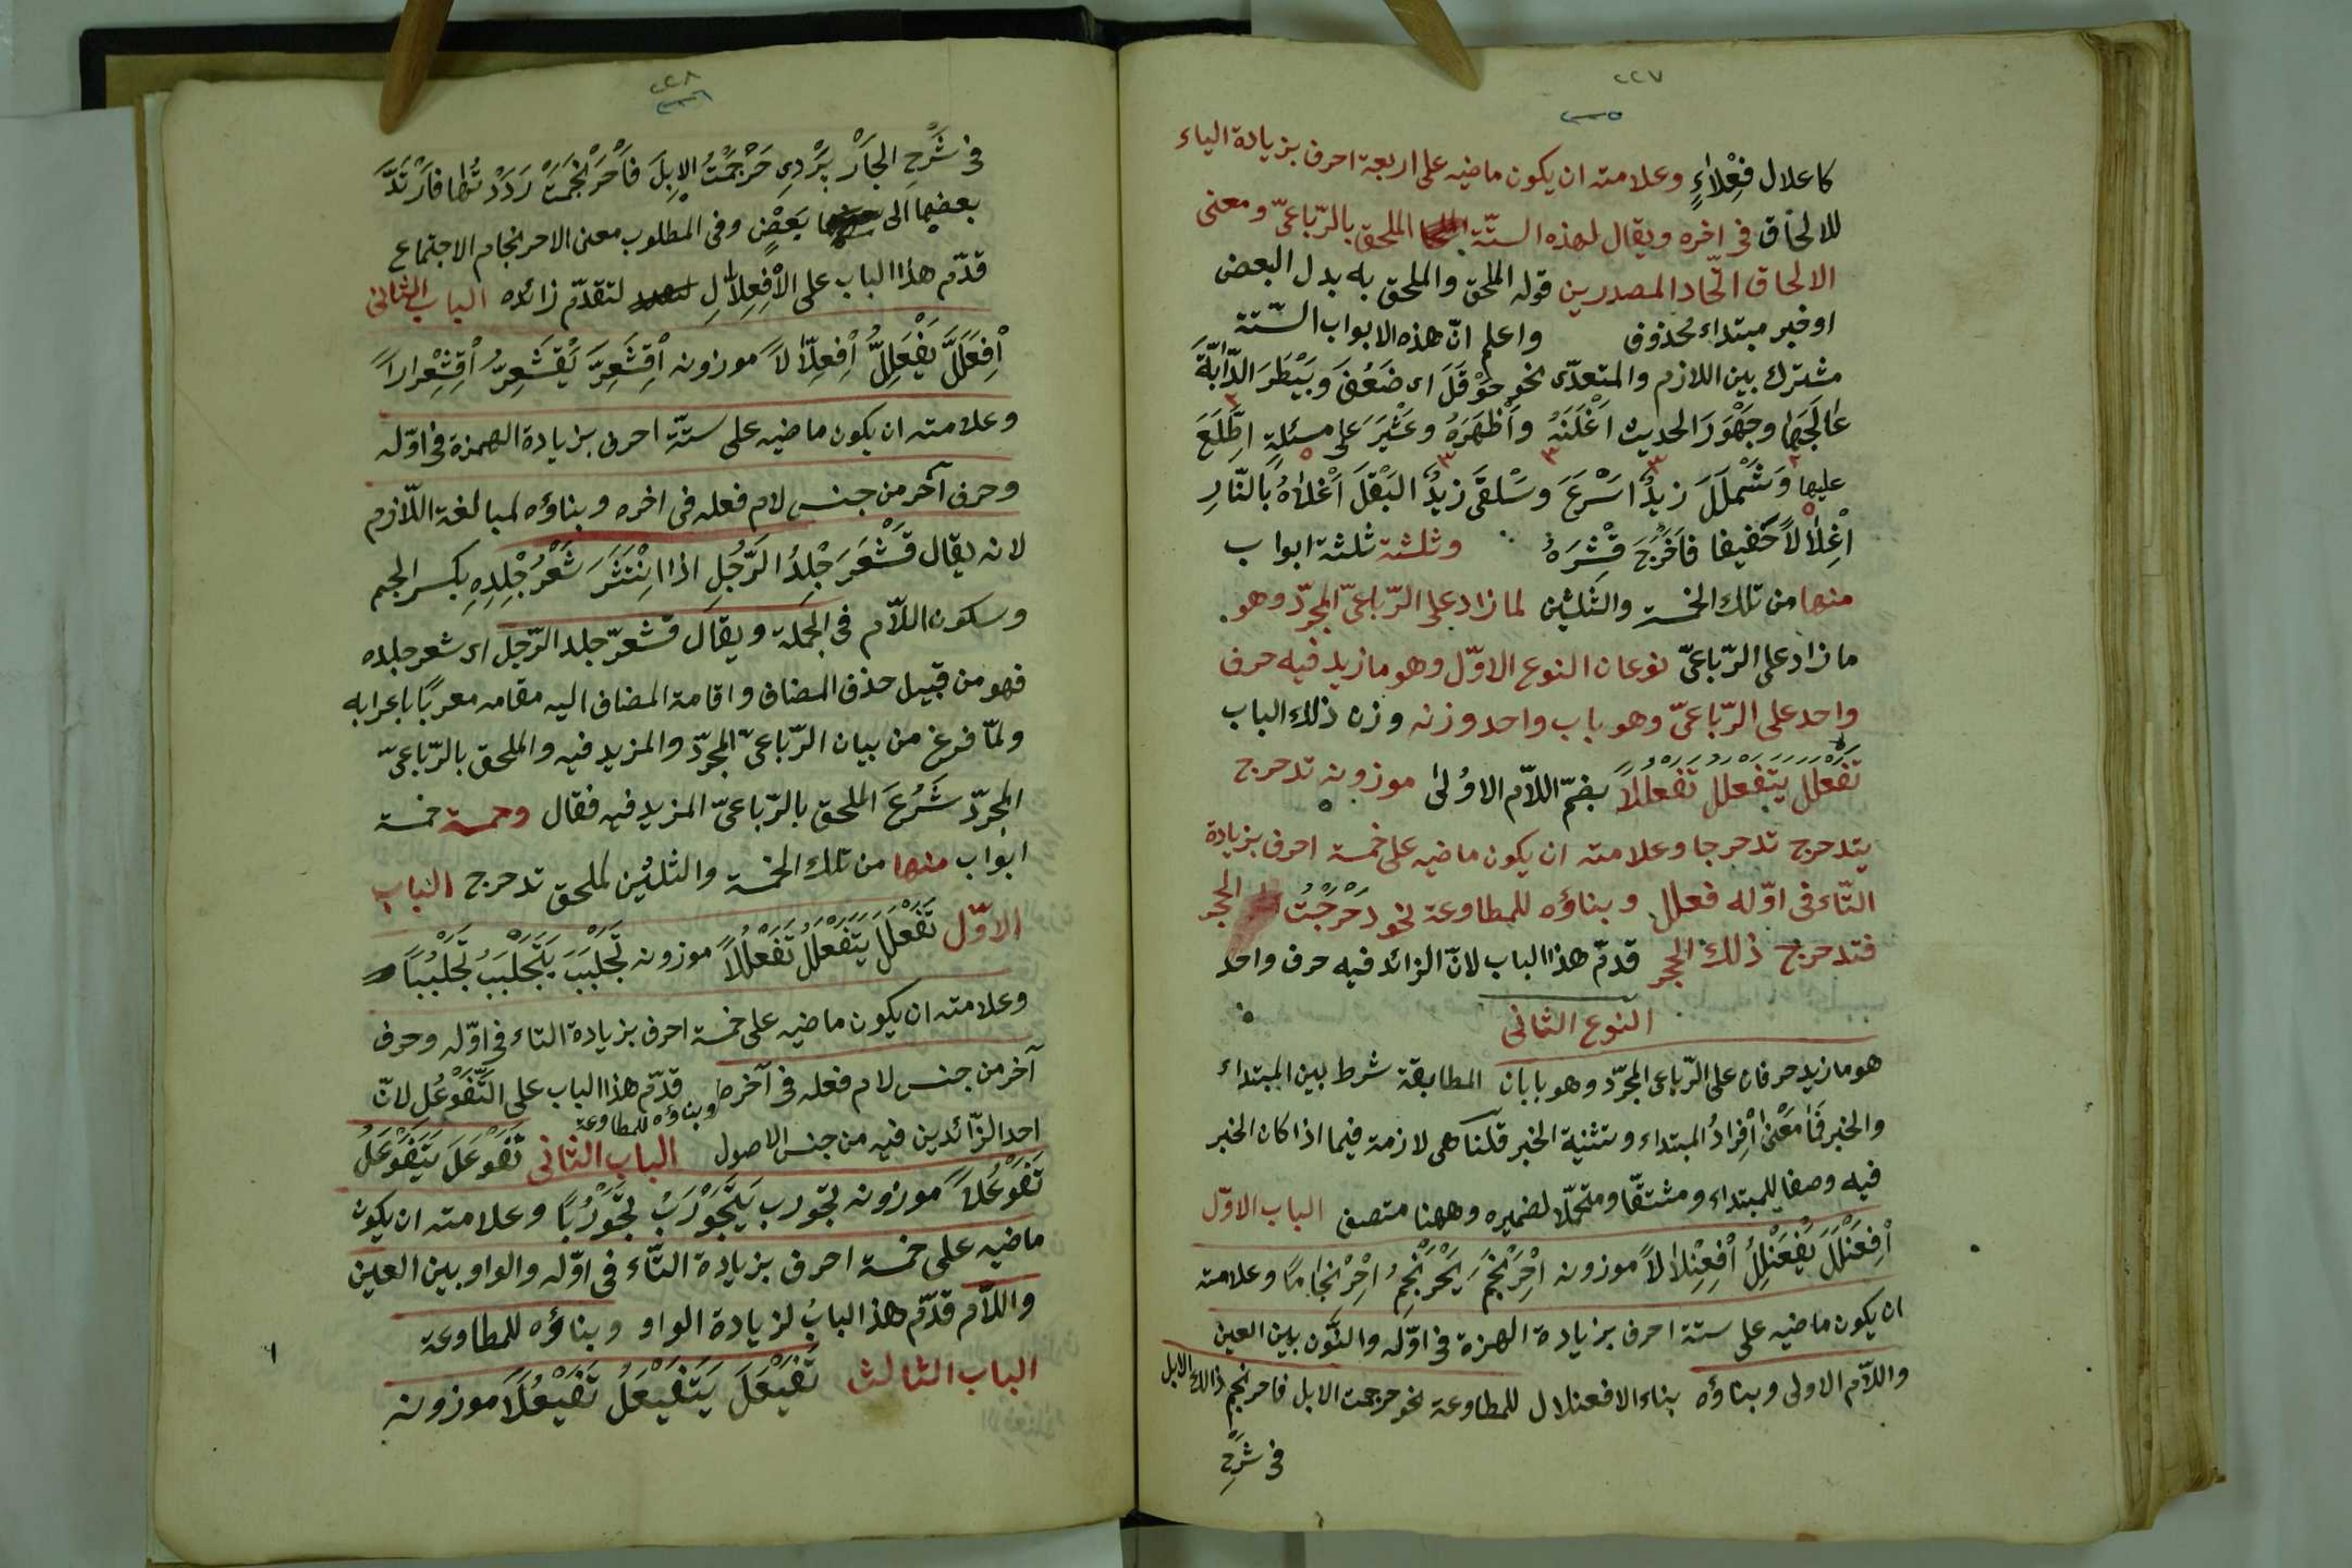 ٢٢٧
٣٥
كاعلال فِعْلاٰءٍ وعلامته ان يكون ماضيه على اربعة احرف بزيادة الياء
للالحاق فى اخره ويقال لهذه الستّة الملحق بالرّباعىّ ومعنى
الالحاق اتّحاد المصدرين قوله الملحق والملحق به بدل البعض
او خبر مبتداء محذوف واعلم انّ هذه الابواب الستّة
مشترك بين اللازم والمتعدّى نحو حَوْقَلَ اى ضَعُفَ وبَيْطَرَ الدّابّةَ
عٰالَجَهٰا وجَهْوَرَ الحديث اَعْلَنَهُ واَظْهَرَهُ وعَثْيَرَ على مسئلةٍ اِطَّلَعَ
عليها وَشَمْلَلَ زيدٌ اَسْرَعَ وسَلقَى زيدٌ البَقْلَ اَغْلاٰهُ بالنّارِ
اِغْلاٰلاً خَفيفا فاَخْرَجَ قِشْرَهُ وثلثة ثلثة ابواب
منها من تلك الخمسة والثلثين لما زاد على الرّباعىّ المجرّد وهو
ما زاد على الرّباعىّ نوعان النوع الاوّل وهو ما زيد فيه حرف
واحد على الرّباعىّ وهو باب واحد وزنه وزن ذلك الباب
تَفَعْلَلَ يَتَفَعْلَلُ تَفَعْلُلاً بضمّ اللاّم الاوُلىٰ موزونه تدحرج
يتدحرج تدحرجا وعلامته ان يكون ماضيه على خمسة احرف بزيادة
التّاء فى اوّله فعلل وبناؤه للمطاوعة نحو دَحْرَجْتُ الحجر
فتدحرج ذلك الحجر قدّم هذا الباب لانّ الزائد فيه حرف واحد
النوع الثانى
هو ما زيد حرفان على الرّباعى المجرّد وهو بابان المطابقة شرط بين المبتداء
والخبر فَمٰا مَعْنىٰ اِفْرٰادُ المبتداء وتثنية الخبر قلنا هى لازمة فيما اذا كان الخبر
فيه وصفا للمبتداء ومشتقّا ومتحمّلا لضميره وههنا متصف الباب الاوّل
اِفْعَنْلَلَ يَفْعَنْلِلُ اِفْعِنْلاٰلاً موزونه اِحْرَنْجَمَ يَحْرَنْجِمُ اِحْرِنْجٰامًا وعلامته
ان يكون ماضيه على ستة احرف بزيادة الهمزة فى اوّله والنّون بين العين
واللاّم الاولى وبناؤه بناء الافعنلال للمطاوعة نحو حرجمت الابل فاحرنجم ذلك الابل
فى شَرْحِ
٢٢٨
٣٣٦
فى شَرْحِ الجٰارْ پَرْدِى حَرْجَمْتُ الاِبِلَ فَاحْرَنْجَمَتْ رَدَدْتُهٰا فَارْتَدَّ
بعضها الى بَعْضٍ وفى المطلوب معنى الاحرنجام الاجتماع
قدّم هذا الباب على الاِفْعِلاّٰلِ لتقدّم زائده الباب الثانى
اِفْعَلَلَّ يَفْعَلِلُّ اِفْعِلاّٰلاً موزونه اِقْشَعَرَّ يَقْشَعِرُّ اِقْشِعْرارًا
وعلامته ان يكون ماضيه على ستّة احرف بزيادة الهمزة فى اوّله
وحرف آخر من جنس لام فعله فى اخره وبناؤه لمبالغة اللاّزم
لانه يقال قَشْعَرَ جْلِدُ الرَّجُلِ اذا اِنْتَشَرَ شَعْرُ جْلِدِهِ بكسر الجيم
وسكون اللاّم فى الجملة ويقال قشعرّ جلد الرّجل اى شعر جلده
فهو من قبيل حذف المضاف واقامة المضاف اليه مقامه معربًا باعرابه
ولمّا فرغ من بيان الرّباعىّ المجرّد والمزيد فيه والملحق بالرّباعىّ
المجرّد شَرَعَ الملحق بالرّباعىّ المزيد فيه فقال وخمسة خمسة
ابواب منها من تلك الخمسة والثلثين لملحق تدحرج الباب
الاوّل تَفَعْلَلَ يَتَفَعْلَلُ تَفَعْلُلاً موزونه تَجَلْبَبَ يَتَجَلْبَبُ تَجَلْبُبًا
وعلامته ان يكون ماضيه على خمسة احرف بزيادة التاء فى اوّله وحرف
آخر من جنس لام فعله فى آخره وبناؤه للمطاوعة قدّم هذا الباب على التَّفَوْعُلِ لانّ
احد الزّائدين فيه من جنس الاصول الباب الثانى تَفَوْعَلَ يَتَفَوْعَلُ
تَفَوْعُلاً موزونه تجورب يَتَجَوْرَبُ تَجَوْرُبًا وعلامته ان يكون
ماضيه على خمسة احرف بزيادة التّاء فى اوّله والواو بين العين
واللاّم قدّم هذا البابُ لزيادة الواو وبناؤه للمطاوعة
الباب الثالث تَفَيْعَلَ يَتَفَيْعَلُ تَفَيْعُلاً موزونه